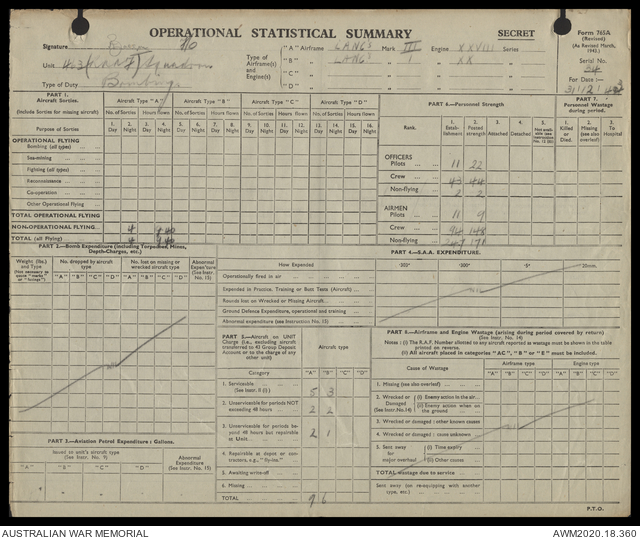 OPERATIONAL STATISTICAL SUMMARY
SECRET
Form 765A
(Revised)
(As Revised March, 1943.)
Serial No.
24
For Date:—
31/12/43
Signature
F/O
Unit 463 (RAAF) Squadron
Type of Duty Bombing
Type of Airframe(s) and Engine(s)
"A" Airframe LANCS Mark III Engine XXVIII Series
"B" " LANCS " I " XX "
"C" " " " "
"D" " " " "
PART 1.
Aircraft Sorties.
(Include Sorties for missing aircraft)
Purpose of Sorties
Aircraft Type "A" Aircraft Type "B" Aircraft Type "C" Aircraft Type "D"
No. of Sorties Hours flown No. of Sorties Hours flown No. of Sorties Hours flown No. of Sorties Hours flown
1. Day 2. Night 3. Day 4. Night 5. Day 6. Night 7. Day 8. Night 9. Day 10. Night 11. Day 12. Night 13. Day 14. Night 15. Day 16. Night
OPERATIONAL FLYING
Bombing (all types)
Sea-mining
Fighting (all types)
Reconnaissance
Co-operation
Other Operational Flying
TOTAL OPERATIONAL FLYING
NON-OPERATIONAL FLYING 4 9.40
TOTAL (all Flying) 4 9.40
PART 6.—Personnel Strength
Rank.
1. Establishment 2. Posted strength 3. Attached 4. Detached
OFFICERS
Pilots 11 22
Crew 43 44
Non-flying 2 2
AIRMEN
Pilots 11 9
Crew 94 148
Non-flying 247 171
PART 7.
Personnel Wastage during period.
1. Killed or Died. 2. Missing (see also overleaf) 3. To Hospital
PART 2.—Bomb Expenditure (including Torpedoes, Mines, Depth-Charges, etc.)
Weight (lbs.) and Type
No. dropped by aircraft type
No. lost on missing or wrecked aircraft type
Abnormal Expenditure (See Instr. No. 15)
"A" "B" "C" "D" "A" "B" "C" "D"
PART 4.—S.A.A. EXPENDITURE.
How Expended .303" .300" .5" 20mm.
Operationally fired in air
Expended in Practice, Training or Butt Tests (Aircraft)
Rounds lost on Wrecked or Missing Aircraft
Ground Defence Expenditure, operational and training
Abnormal expenditure (see Instruction No. 15)
PART 5.—Aircraft on UNIT Charge (i.e., excluding aircraft transferred to 43 Group Deposit Account or to the charge of any other unit)
Aircraft type
Category "A" "B" "C" "D"
1. Serviceable 5 3
2. Unserviceable for periods NOT exceeding 48 hours 2 2
3. Unserviceable for periods beyond 48 hours but repairable at Unit 2 1
4. Repairable at depot or contractors, e.g., "fly-ins."
5. Awaiting write-off
6. Missing
TOTAL 9 6
PART 6.—Airframe and Engine Wastage (arising during period covered by return)
(See Instr. No. 14)
Notes: (i) The R.A.F. Number allotted to any aircraft reported as wastage must be shown in the table printed on reverse.
(ii) All aircraft placed in categories "AC," "B" or "E" must be included.
Cause of Wastage
Airframe type Engine type
"A" "B" "C" "D" "A" "B" "C" "D"
1. Missing (see also overleaf)
2. Wrecked or Damaged (See Instr. No. 14) (i) Enemy action in the air
(ii) Enemy action when on the ground
3. Wrecked or damaged: other known causes
4. Wrecked or damaged: cause unknown
5. Sent away for major overhaul (i) Time expiry
(ii) Other causes
TOTAL wastage due to service
Sent away (on re-equipping with another type, etc.)
PART 3.—Aviation Petrol Expenditure: Gallons.
Issued to unit's aircraft type (See Instr. No. 9)
Abnormal Expenditure (See Instr. No. 15)
"A" "B" "C" "D"
P.T.O.
AUSTRALIAN WAR MEMORIAL
AWM2020.18.360